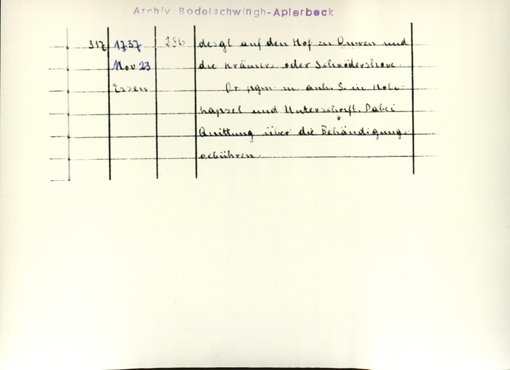 Archiv Bodelschwingh-Aplerbeck
317 1737 236 desgl. auf den Hof zu Duven und
Nov 23 die Krämers oder Schröderskove.
Essen Or. pgm. m. anh. S. in Holz-
kapsel und Unterschrift. Dabei
Quittung über die Behändigungs-
gebühren.